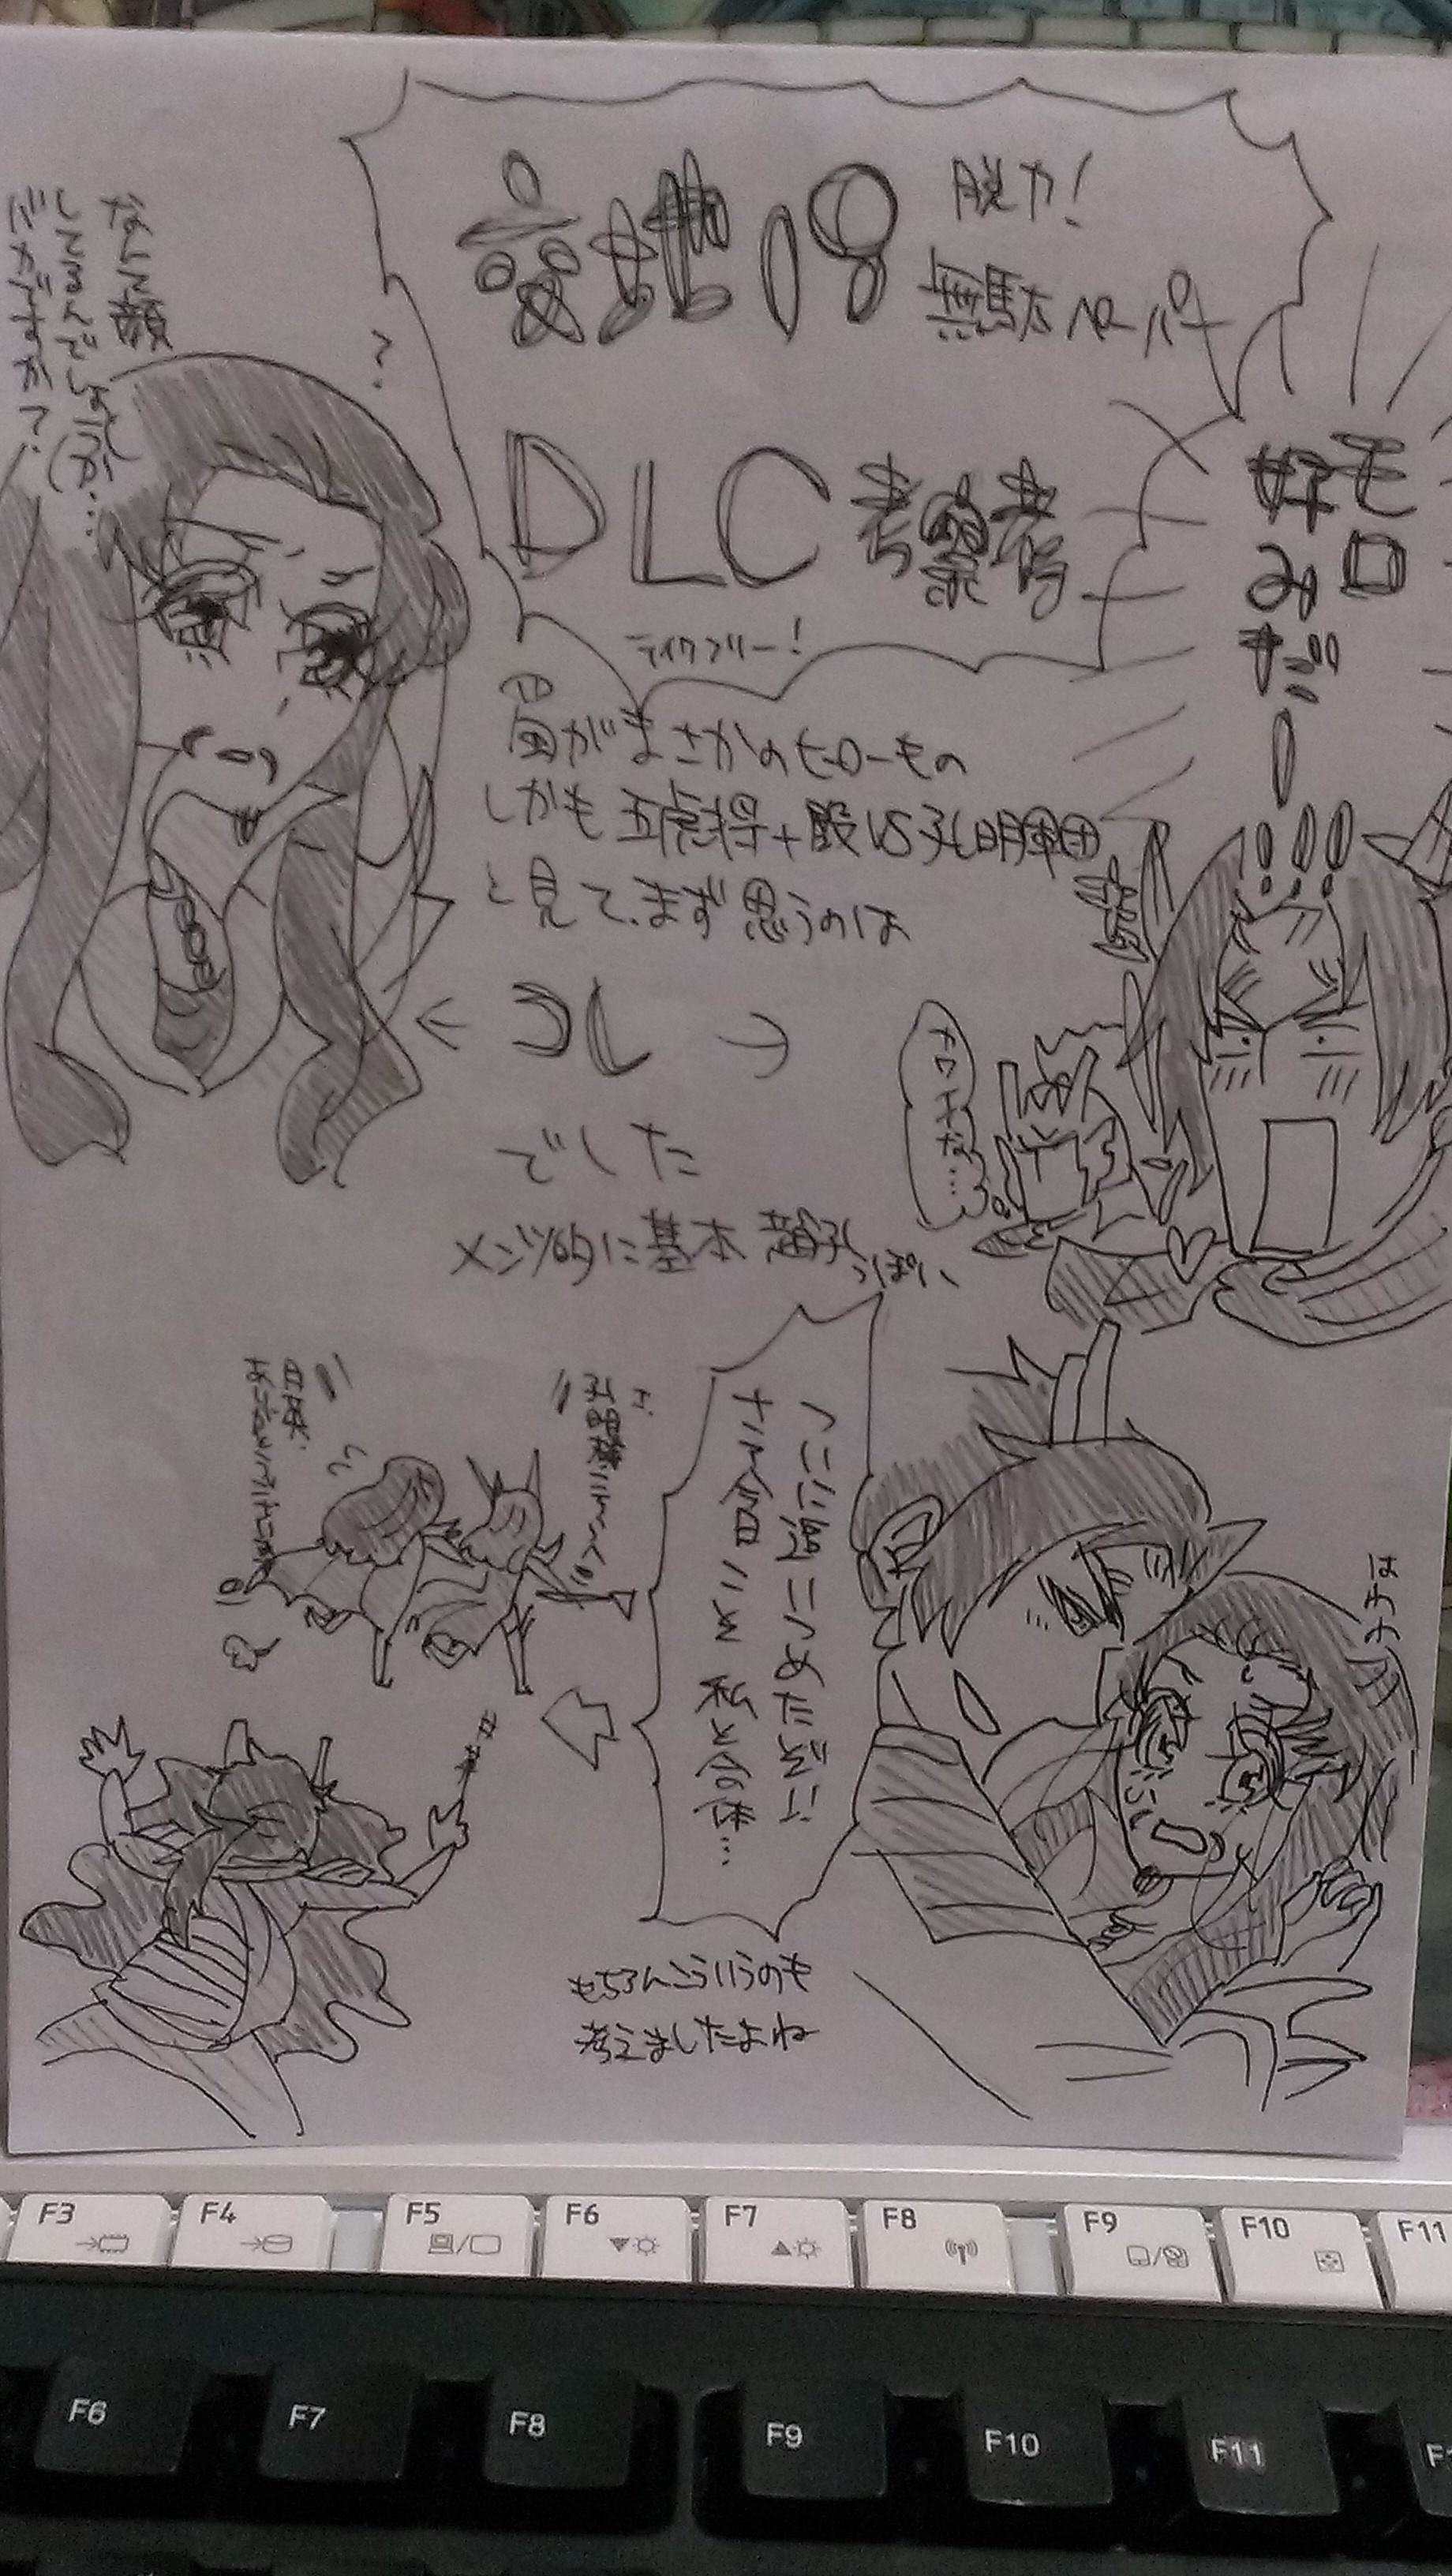 脱力！
無駄ペーパー
DLC考察号
テイクフリー！
モロ
好み
だ！！！！
なんて顔
してるんでしょうか…
バカですか？
？
がまさかのヒーローもの
しかも五虎将＋殿VS孔明軍団
と見て、まず思うのは
←コレ→
でした
メンツ的に基本 趙孔っぽい
ついに追いつめたぞ!!
さぁ今日こそ私と合体…
はナチ
もちろんこういうのも
考えましたよね
F3
F4
F5
F6
F7
F8
F9
F10
F11
F6
F7
F8
F9
F10
F11